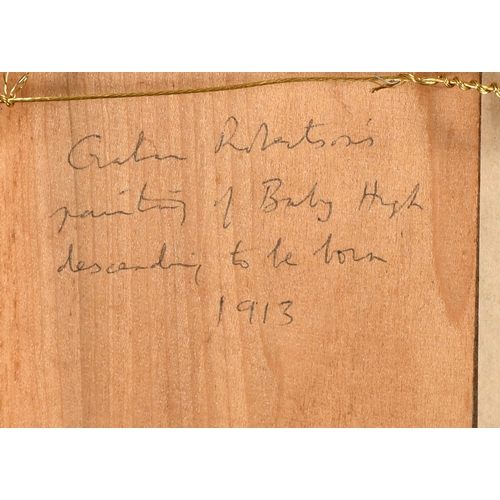 Graham Robertson's
painting of Baby Hugh
descending to be born
1913